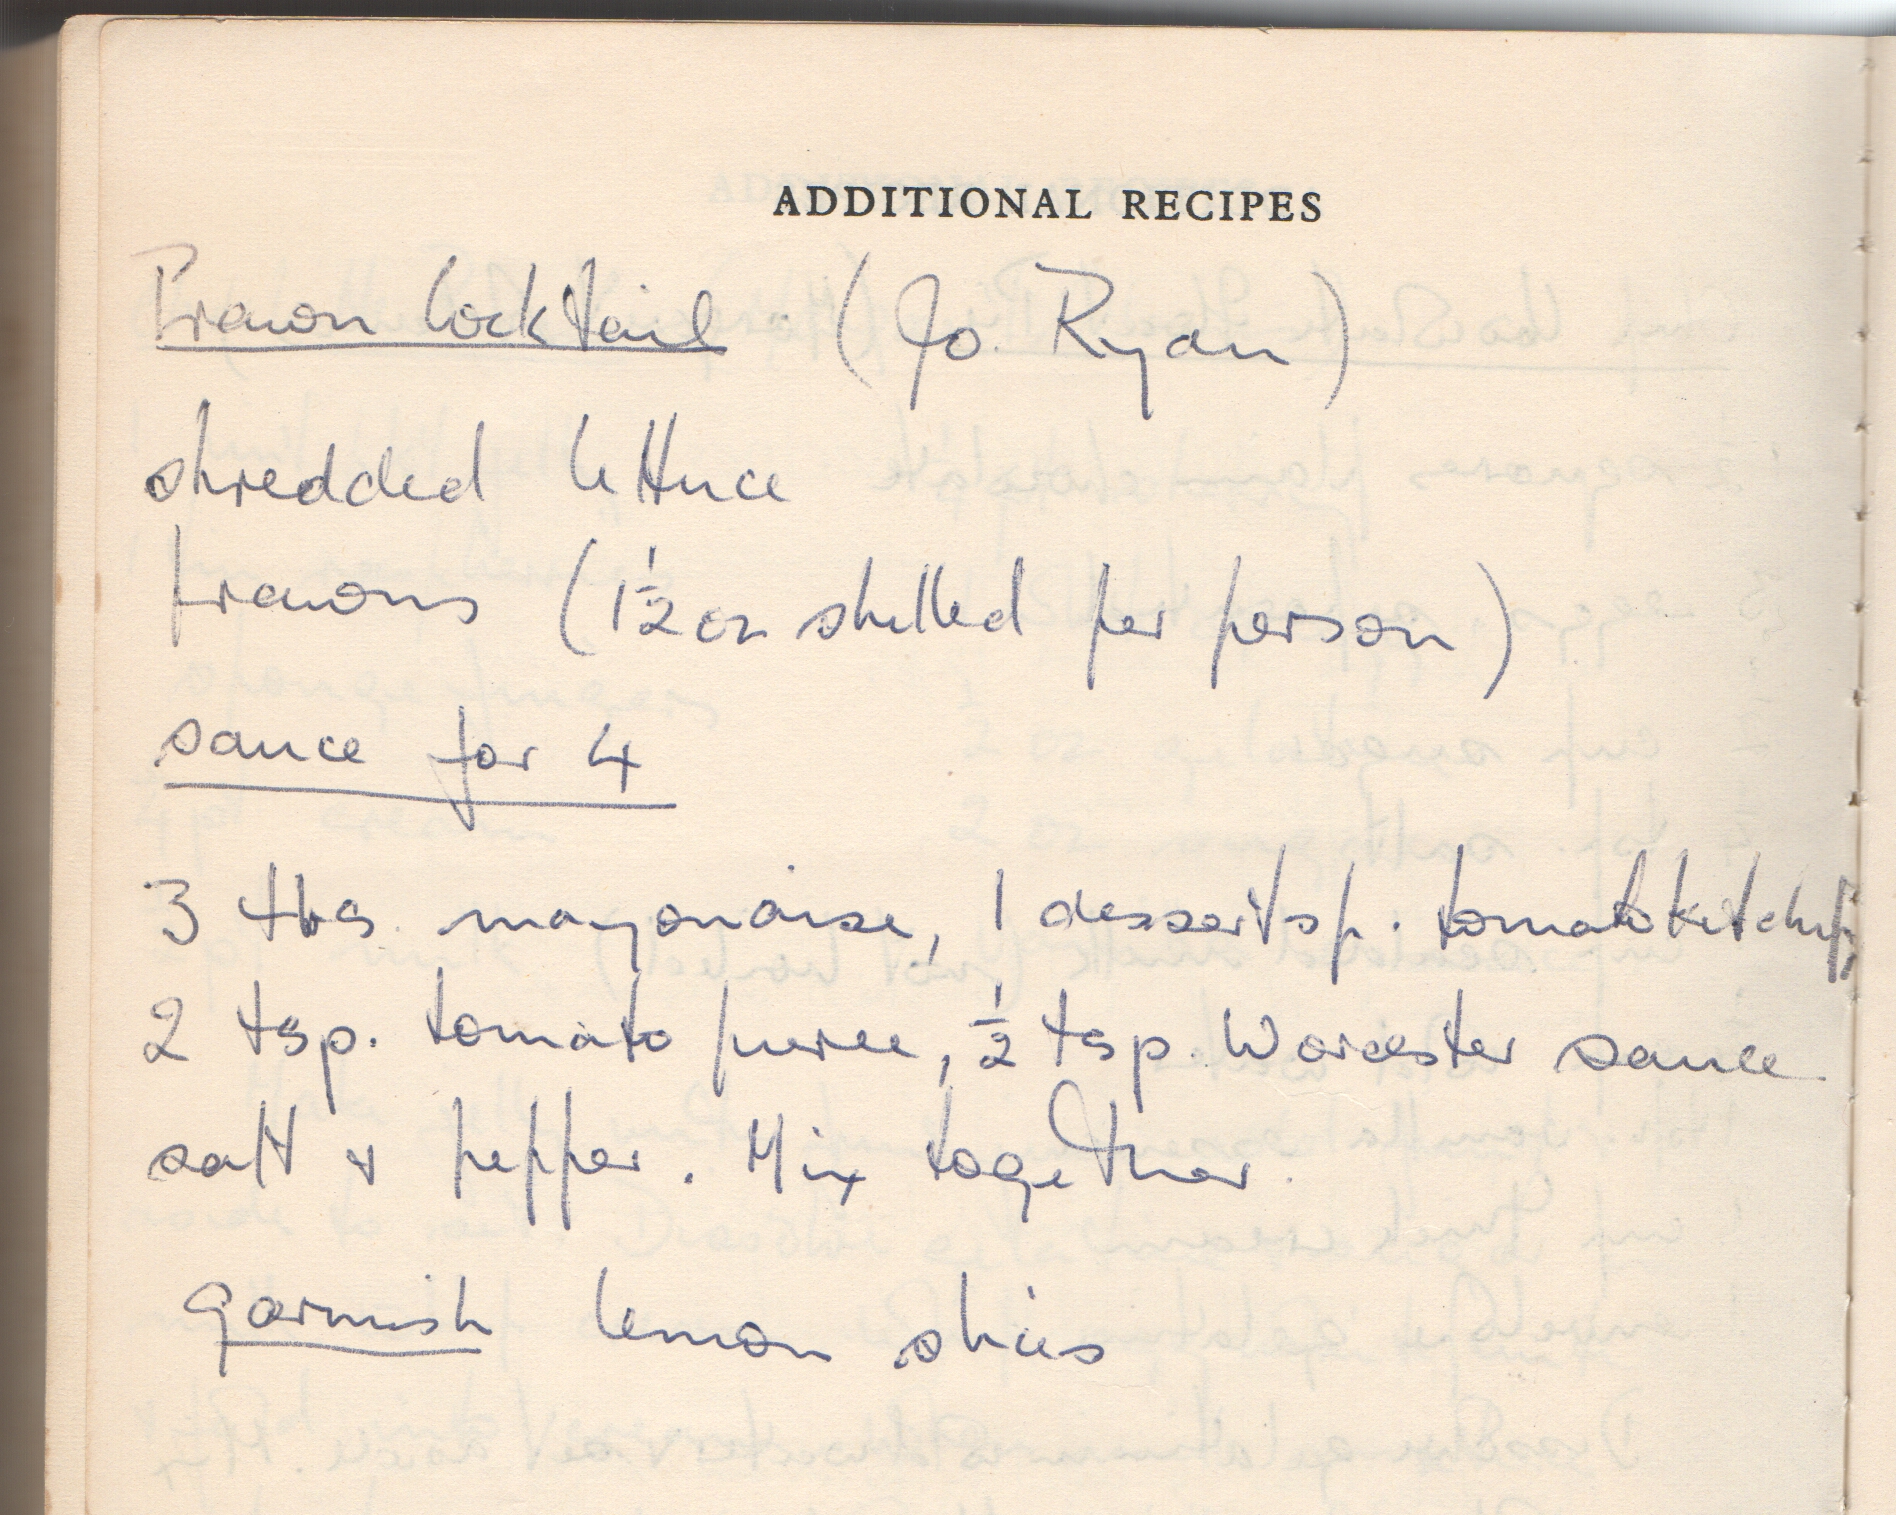 ADDITIONAL RECIPES
Prawn Cocktail (Jo. Ryan)
shredded lettuce
prawns (1½ oz shelled per person)
sauce for 4
3 tbs. mayonaise, 1 dessertsp. tomato ketchup,
2 tsp. tomato puree, ½ tsp. Worcester sauce
salt & pepper. Mix together.
garnish lemon slices